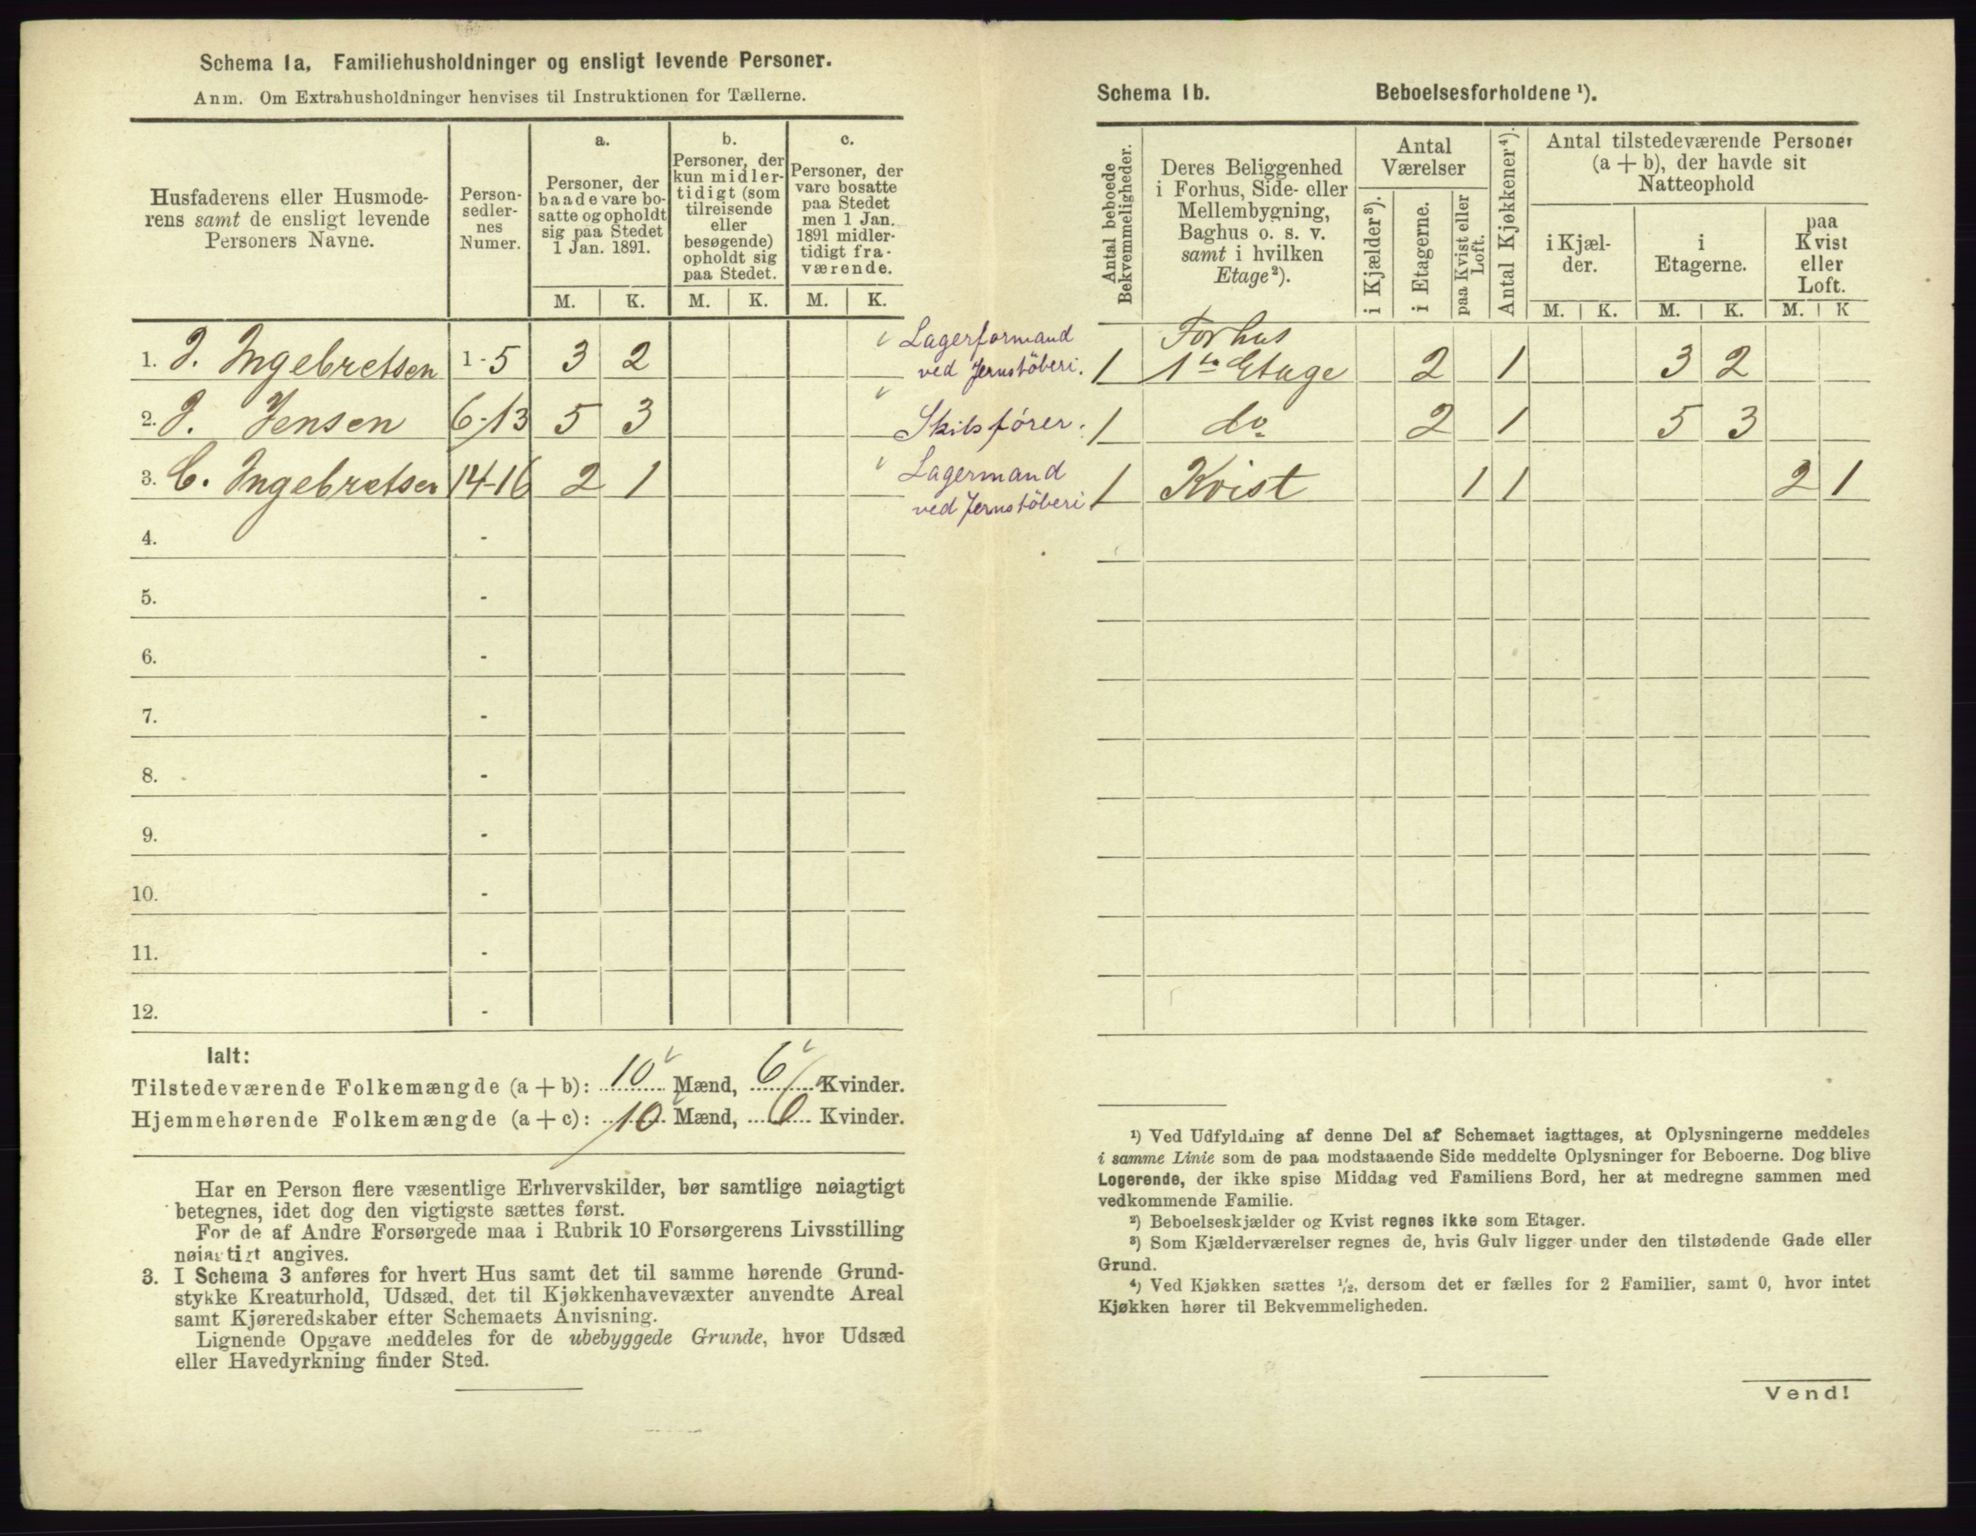 Schema 1a. Familiehusholdninger og ensligt levende Personer.
Anm. Om Extrahusholdninger henvises til Instruktionen for Tællerne.
Husfaderens eller Husmoderens samt de ensligt levende Personers Navne.
Personsedlernes Numer.
a. Personer, der baade vare bosatte og opholdt sig paa Stedet 1 Jan. 1891.
b. Personer, der kun midlertidigt (som tilreisende eller besøgende) opholdt sig paa Stedet.
c. Personer, der vare bosatte paa Stedet men 1 Jan. 1891 midlertidigt fraværende.
M. K. M. K. M. K.
1. J. Ingebretsen 1-5 3 2 Lagerformand ved Jernstöberi.
2. J. Jensen 6-13 5 3 Skibsfører.
3. C. Ingebretsen 14-16 2 1 Lagermand ved Jernstöberi
4. -
5. -
6. -
7. -
8. -
9. -
10. -
11. -
12. -
Ialt:
Tilstedeværende Folkemængde (a + b): 10 Mænd, 6 Kvinder.
Hjemmehørende Folkemængde (a + c): 10 Mænd, 6 Kvinder.
Har en Person flere væsentlige Erhvervskilder, bør samtlige nøiagtigt
betegnes, idet dog den vigtigste sættes først.
For de af Andre Forsørgede maa i Rubrik 10 Forsørgerens Livsstilling
nøiagtigt angives.
3. I Schema 3 anføres for hvert Hus samt det til samme hørende Grund-
stykke Kreaturhold, Udsæd, det til Kjøkkenhavevæxter anvendte Areal
samt Kjøreredskaber efter Schemaets Anvisning.
Lignende Opgave meddeles for de ubebyggede Grunde, hvor Udsæd
eller Havedyrkning finder Sted.
Schema 1b. Beboelsesforholdene ¹).
Antal beboede Bekvemmeligheder.
Deres Beliggenhed i Forhus, Side- eller Mellembygning, Baghus o. s. v. samt i hvilken Etage²).
Antal Værelser
i Kjælder³).
i Etagerne.
paa Kvist eller Loft.
Antal Kjøkkener⁴).
Antal tilstedeværende Personer (a + b), der havde sit Natteophold
i Kjælder.
i Etagerne.
paa Kvist eller Loft.
M. K. M. K. M. K
1 Forhus 1ste Etage 2 1 3 2
1 do 2 1 5 3
1 Kvist 1 1 2 1
¹) Ved Udfyldning af denne Del af Schemaet iagttages, at Oplysningerne meddeles
i samme Linie som de paa modstaaende Side meddelte Oplysninger for Beboerne. Dog blive
Logerende, der ikke spise Middag ved Familiens Bord, her at medregne sammen med
vedkommende Familie.
²) Beboelseskjælder og Kvist regnes ikke som Etager.
³) Som Kjælderværelser regnes de, hvis Gulv ligger under den tilstødende Gade eller
Grund.
⁴) Ved Kjøkken sættes ½, dersom det er fælles for 2 Familier, samt 0, hvor intet
Kjøkken hører til Bekvemmeligheden.
Vend!